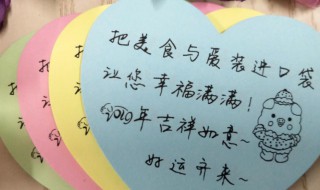 把美食与爱装进口袋
让您幸福满满！
2019年吉祥如意~
好运并来~